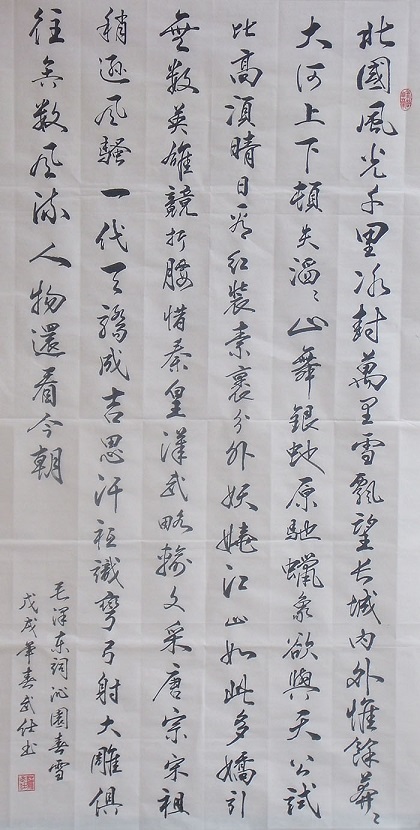 北國風光千里冰封萬里雪飄望長城内外惟餘莽〻
大河上下頓失滔〻山舞銀蛇原馳蠟象欲與天公試
比高須晴日看紅裝素裹分外妖嬈江山如此多嬌引
無數英雄競折腰惜秦皇漢武略輸文采唐宗宋祖
稍遜風騷一代天驕成吉思汗祗識彎弓射大雕俱
往矣數風流人物還看今朝
毛澤东詞沁園春雪
戊戌年春武仕书